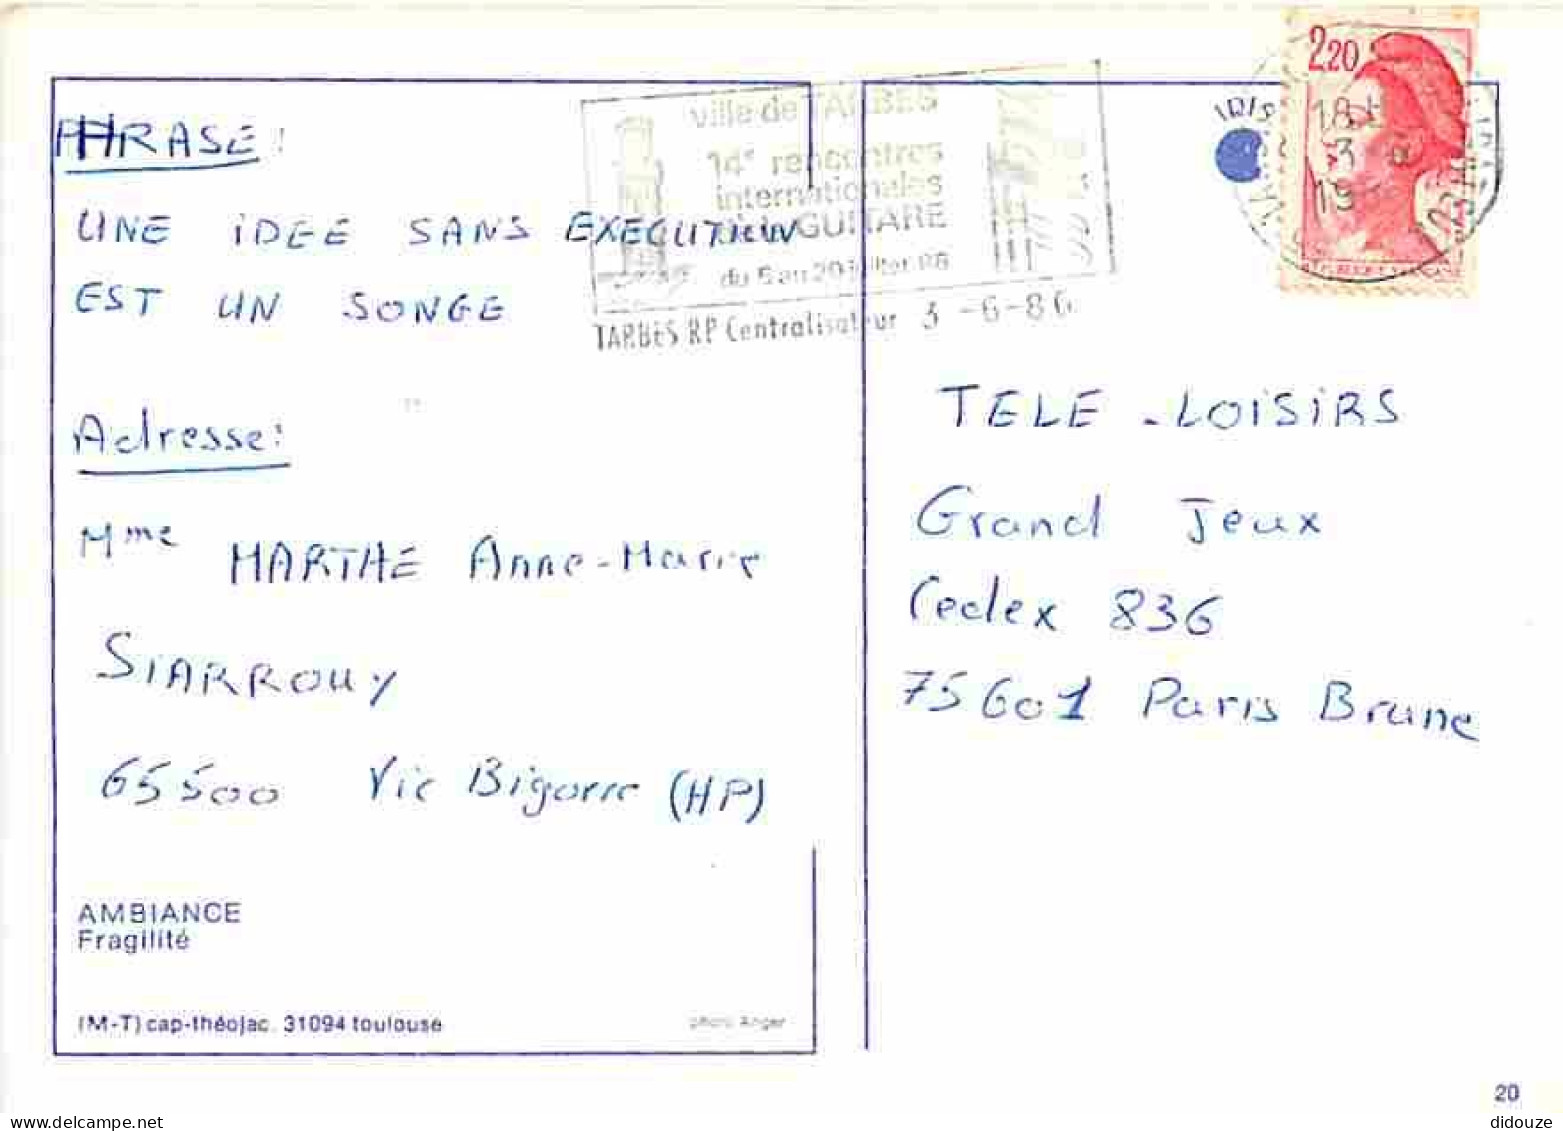 PHRASE :
UNE IDEE SANS EXECUTION
EST UN SONGE
Adresse :
Mme MARTHE Anne-Marie
SIARROUY
65500 Vic Bigorre (HP)
AMBIANCE
Fragilité
(M-T) cap-théojac. 31094 toulouse
photo Anger
ville de TARBES
14e rencontres
internationales
GUITARE
du 5 au 20 juillet 86
TARBES RP Centralisateur 3 -6-86
IRIS
2,20
18H
3
19
TELE -LOISIRS
Grand Jeux
Cedex 836
75601 Paris Brune
20
didouze